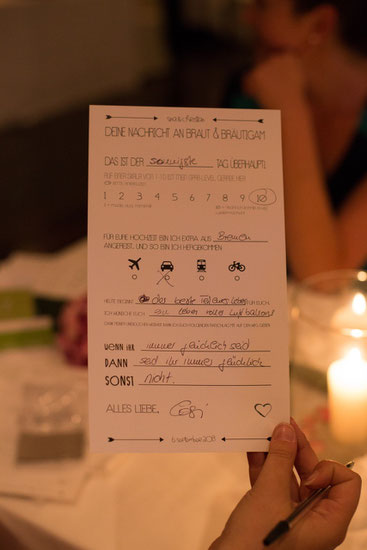 DEINE NACHRICHT AN BRAUT & BRÄUTIGAM
DAS IST DER sonnigste TAG ÜBERHAUPT!
AUF EINER SKALA VON 1-10 IST MEIN SPASSLEVEL GERADE HIER:
1 2 3 4 5 6 7 8 9 10
FÜR EURE HOCHZEIT BIN ICH EXTRA AUS Bremen
ANGEREIST. UND SO BIN ICH HERGEKOMMEN:
HEUTE BEGINNT das beste Teil eures Lebens FÜR EUCH.
ICH WÜNSCHE EUCH ein Leben voller Luftballons!
WENN IHR immer glücklich seid
DANN seid ihr immer glücklich
SONST nicht.
ALLES LIEBE,